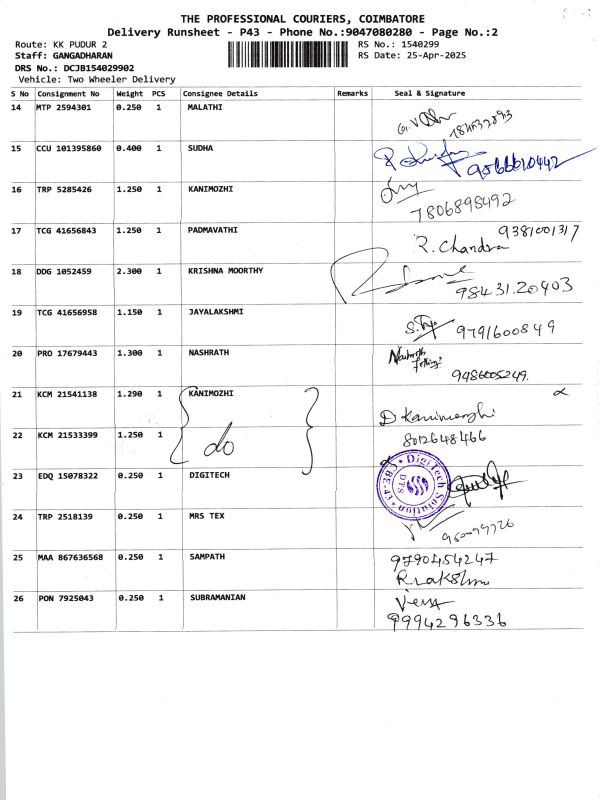 THE PROFESSIONAL COURIERS, COIMBATORE
Delivery Runsheet - P43 - Phone No.:9047080280 - Page No.:2
Route: KK PUDUR 2 RS No.: 1540299
Staff: GANGADHARAN RS Date: 25-Apr-2025
DRS No.: DCJB154029902
Vehicle: Two Wheeler Delivery
S No Consignment No Weight PCS Consignee Details Remarks Seal & Signature
14 MTP 2594301 0.250 1 MALATHI
15 CCU 101395860 0.400 1 SUDHA
9566610442
16 TRP 5285426 1.250 1 KANIMOZHI
7806898492
17 TCG 41656843 1.250 1 PADMAVATHI 9381001317
R. Chandra
18 DDG 1052459 2.300 1 KRISHNA MOORTHY
98431.20403
19 TCG 41656958 1.150 1 JAYALAKSHMI
9791600849
20 PRO 17679443 1.300 1 NASHRATH
9486005249.
21 KCM 21541138 1.290 1 KANIMOZHI
D Kanimozhi
22 KCM 21533399 1.250 1 do 8012648466
23 EDQ 15078322 0.250 1 DIGITECH
DigiTech Solution
DTS
24 TRP 2518139 0.250 1 MRS TEX
25 MAA 867636568 0.250 1 SAMPATH 9790454247
R. lakshmi
26 PON 7925043 0.250 1 SUBRAMANIAN
9994296336